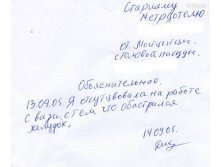 Старшему
Метрдотелю
от Мойщицы
столовой посуды.
Объяснительная
13.09.05. Я отсутствовала на работе
с вязи, с тем что обастрился
желудок.
14.09.05.